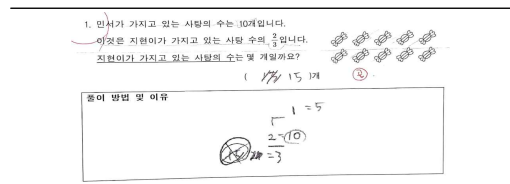 1. 민서가 가지고 있는 사탕의 수는 10개입니다.
이것은 지현이가 가지고 있는 사탕 수의 2/3입니다.
지현이가 가지고 있는 사탕의 수는 몇 개일까요?
( 15 )개 ②
풀이 방법 및 이유
1 = 5
2 = 10
= 3